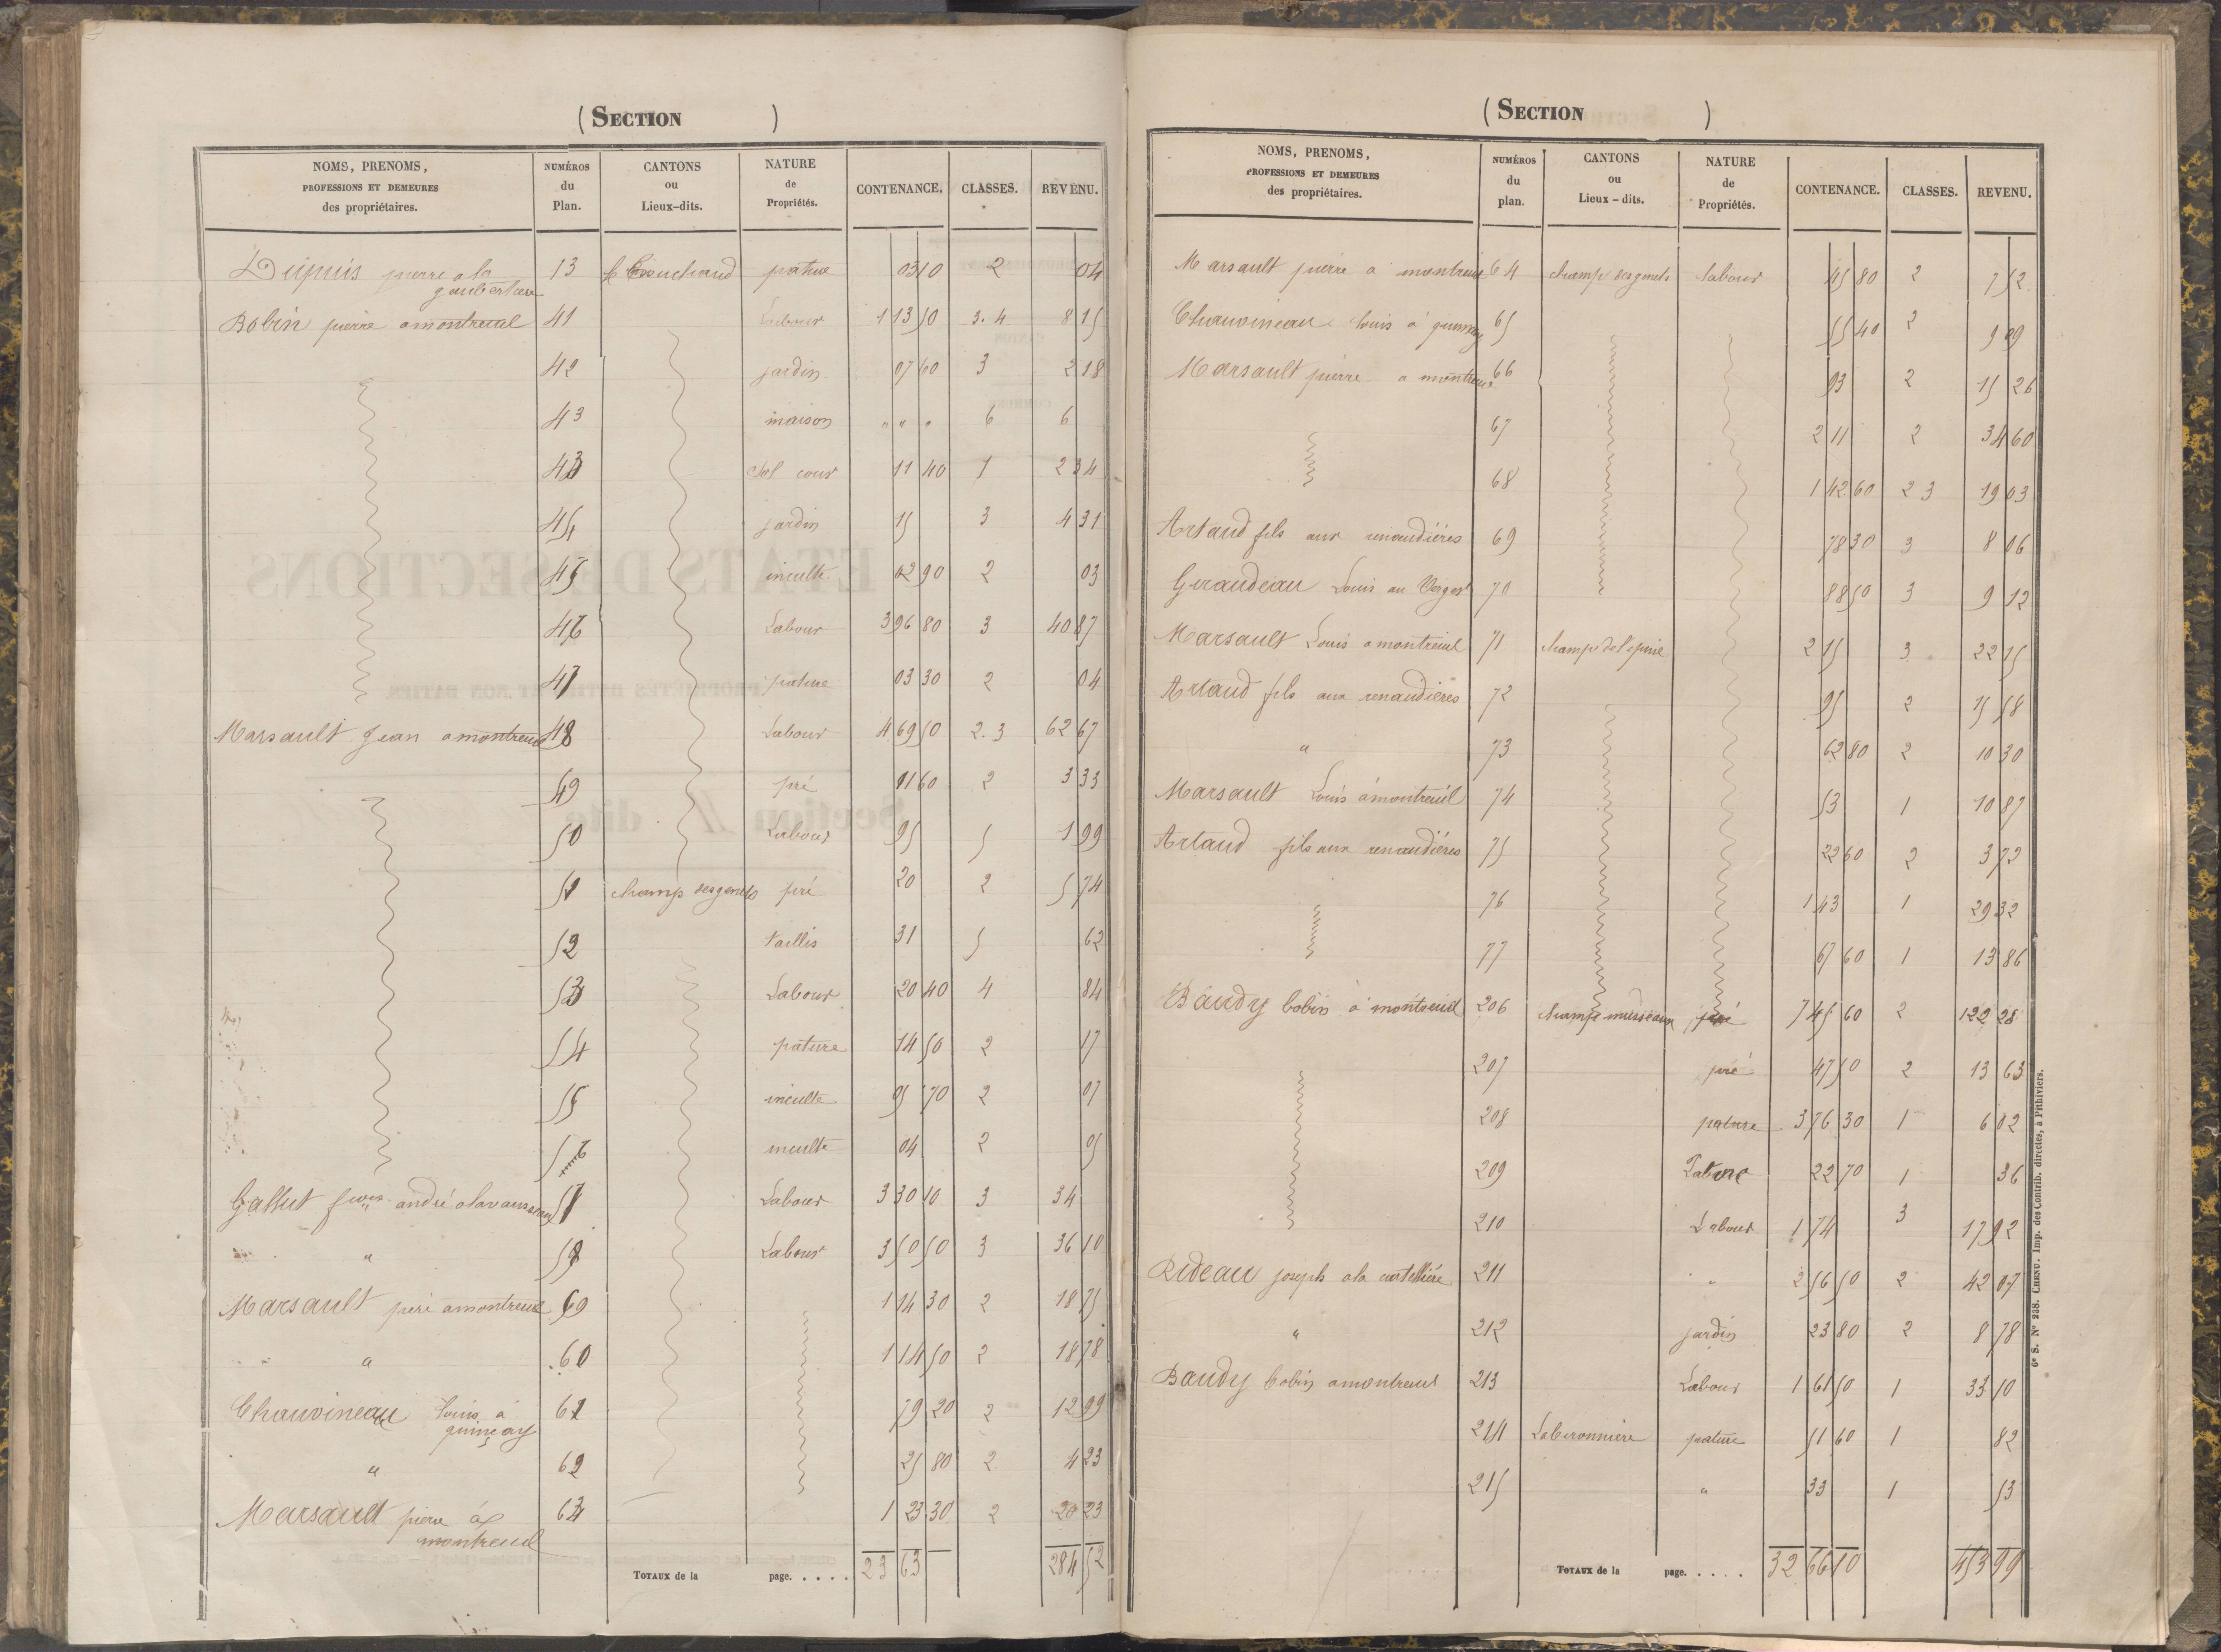 (SECTION )
NOMS, PRENOMS, PROFESSIONS ET DEMEURES des propriétaires. NUMÉROS du Plan. CANTONS ou Lieux-dits. NATURE de Propriétés. CONTENANCE. CLASSES. REVENU.
Dupuis pierre a la 13 pature 03 10 2 04
gaubertiere
Bobin pierre a montreuil 41 Labour 1 13 50 3.4 8 15
42 jardin 07 60 3 2 18
43 maison " " " 6 6
43 Sol cour 11 40 1 2 34
44 jardin 15 3 4 31
45 inculte 02 90 2 03
46 Labour 3 96 80 3 40 87
47 pature 03 30 2 04
Marsault Jean a montreuil 48 Labour 4 69 50 2.3 62 67
49 pré 11 60 2 3 33
50 Labour 95 5 1 99
51 champ des genets pré 20 2 5 74
52 taillis 31 5 62
53 Labour 20 40 4 84
54 pature 14 50 2 17
55 inculte 05 70 2 07
56 inculte 04 2 05
Gallut andré 57 Labour 3 30 10 3 34
" 58 Labour 3 50 50 3 36 10
Marsault a montreuil 59 1 14 30 2 18 75
" 60 1 14 50 2 18 78
Chauvineau Louis à 61 79 20 2 12 99
quinçay
" 62 25 80 2 4 23
Marsault pierre à 63 1 23 30 2 20 23
montreuil
TOTAUX de la page..... 23 63 284 52
(SECTION )
NOMS, PRENOMS, PROFESSIONS ET DEMEURES des propriétaires. NUMÉROS du plan. CANTONS ou Lieux-dits. NATURE de Propriétés. CONTENANCE. CLASSES. REVENU.
Marsault pierre a montreuil 64 champ des genets labour 45 80 2 7 52
Chauvineau Louis à quinçay 65 55 40 2 9 09
Marsault pierre a montreuil 66 93 2 15 26
67 2 11 2 34 60
68 1 42 60 2 3 19 03
Artaud fils aux renaudières 69 78 30 3 8 06
Giraudeau Louis au Verger 70 88 50 3 9 12
Marsault Louis a montreuil 71 champ de l'epine 2 15 3 22 15
Artaud fils aux renaudières 72 95 2 15 58
" 73 62 80 2 10 30
Marsault Louis à montreuil 74 53 1 10 87
Artaud fils aux renaudières 75 22 60 2 3 72
76 1 43 1 29 32
77 67 60 1 13 86
Baudy bobin à montreuil 206 pré 7 45 60 2 122 28
207 pré 47 50 2 13 63
208 pature 3 76 30 1 6 02
209 Pature 22 70 1 36
210 Labour 1 74 3 17 92
Rideau joseph a la 211 " 2 56 50 2 42 07
" 212 jardin 23 80 2 8 78
Baudy bobin a montreuil 213 Labour 1 61 50 1 33 10
214 pature 51 60 1 82
215 " 33 1 53
TOTAUX de la page..... 32 66 10 453 99
6e S. No 238. CHENU. Imp. des Contrib. directes, à Pithiviers.